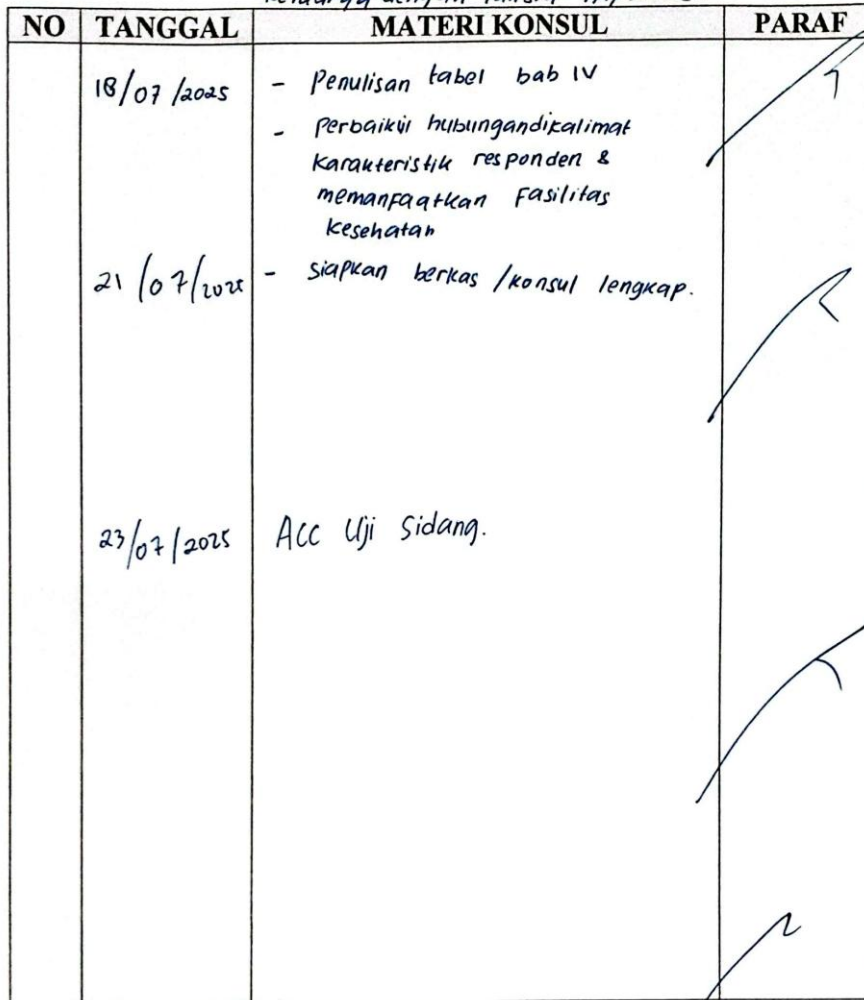 keluarga dengan
NO TANGGAL MATERI KONSUL PARAF
18/07/2025 - Penulisan tabel bab IV
- Perbaikui hubungandikalimat
Karakteristik responden &
memanfaatkan Fasilitas
kesehatan
21/07/2025 - siapkan berkas /konsul lengkap.
23/07/2025 Acc Uji Sidang.